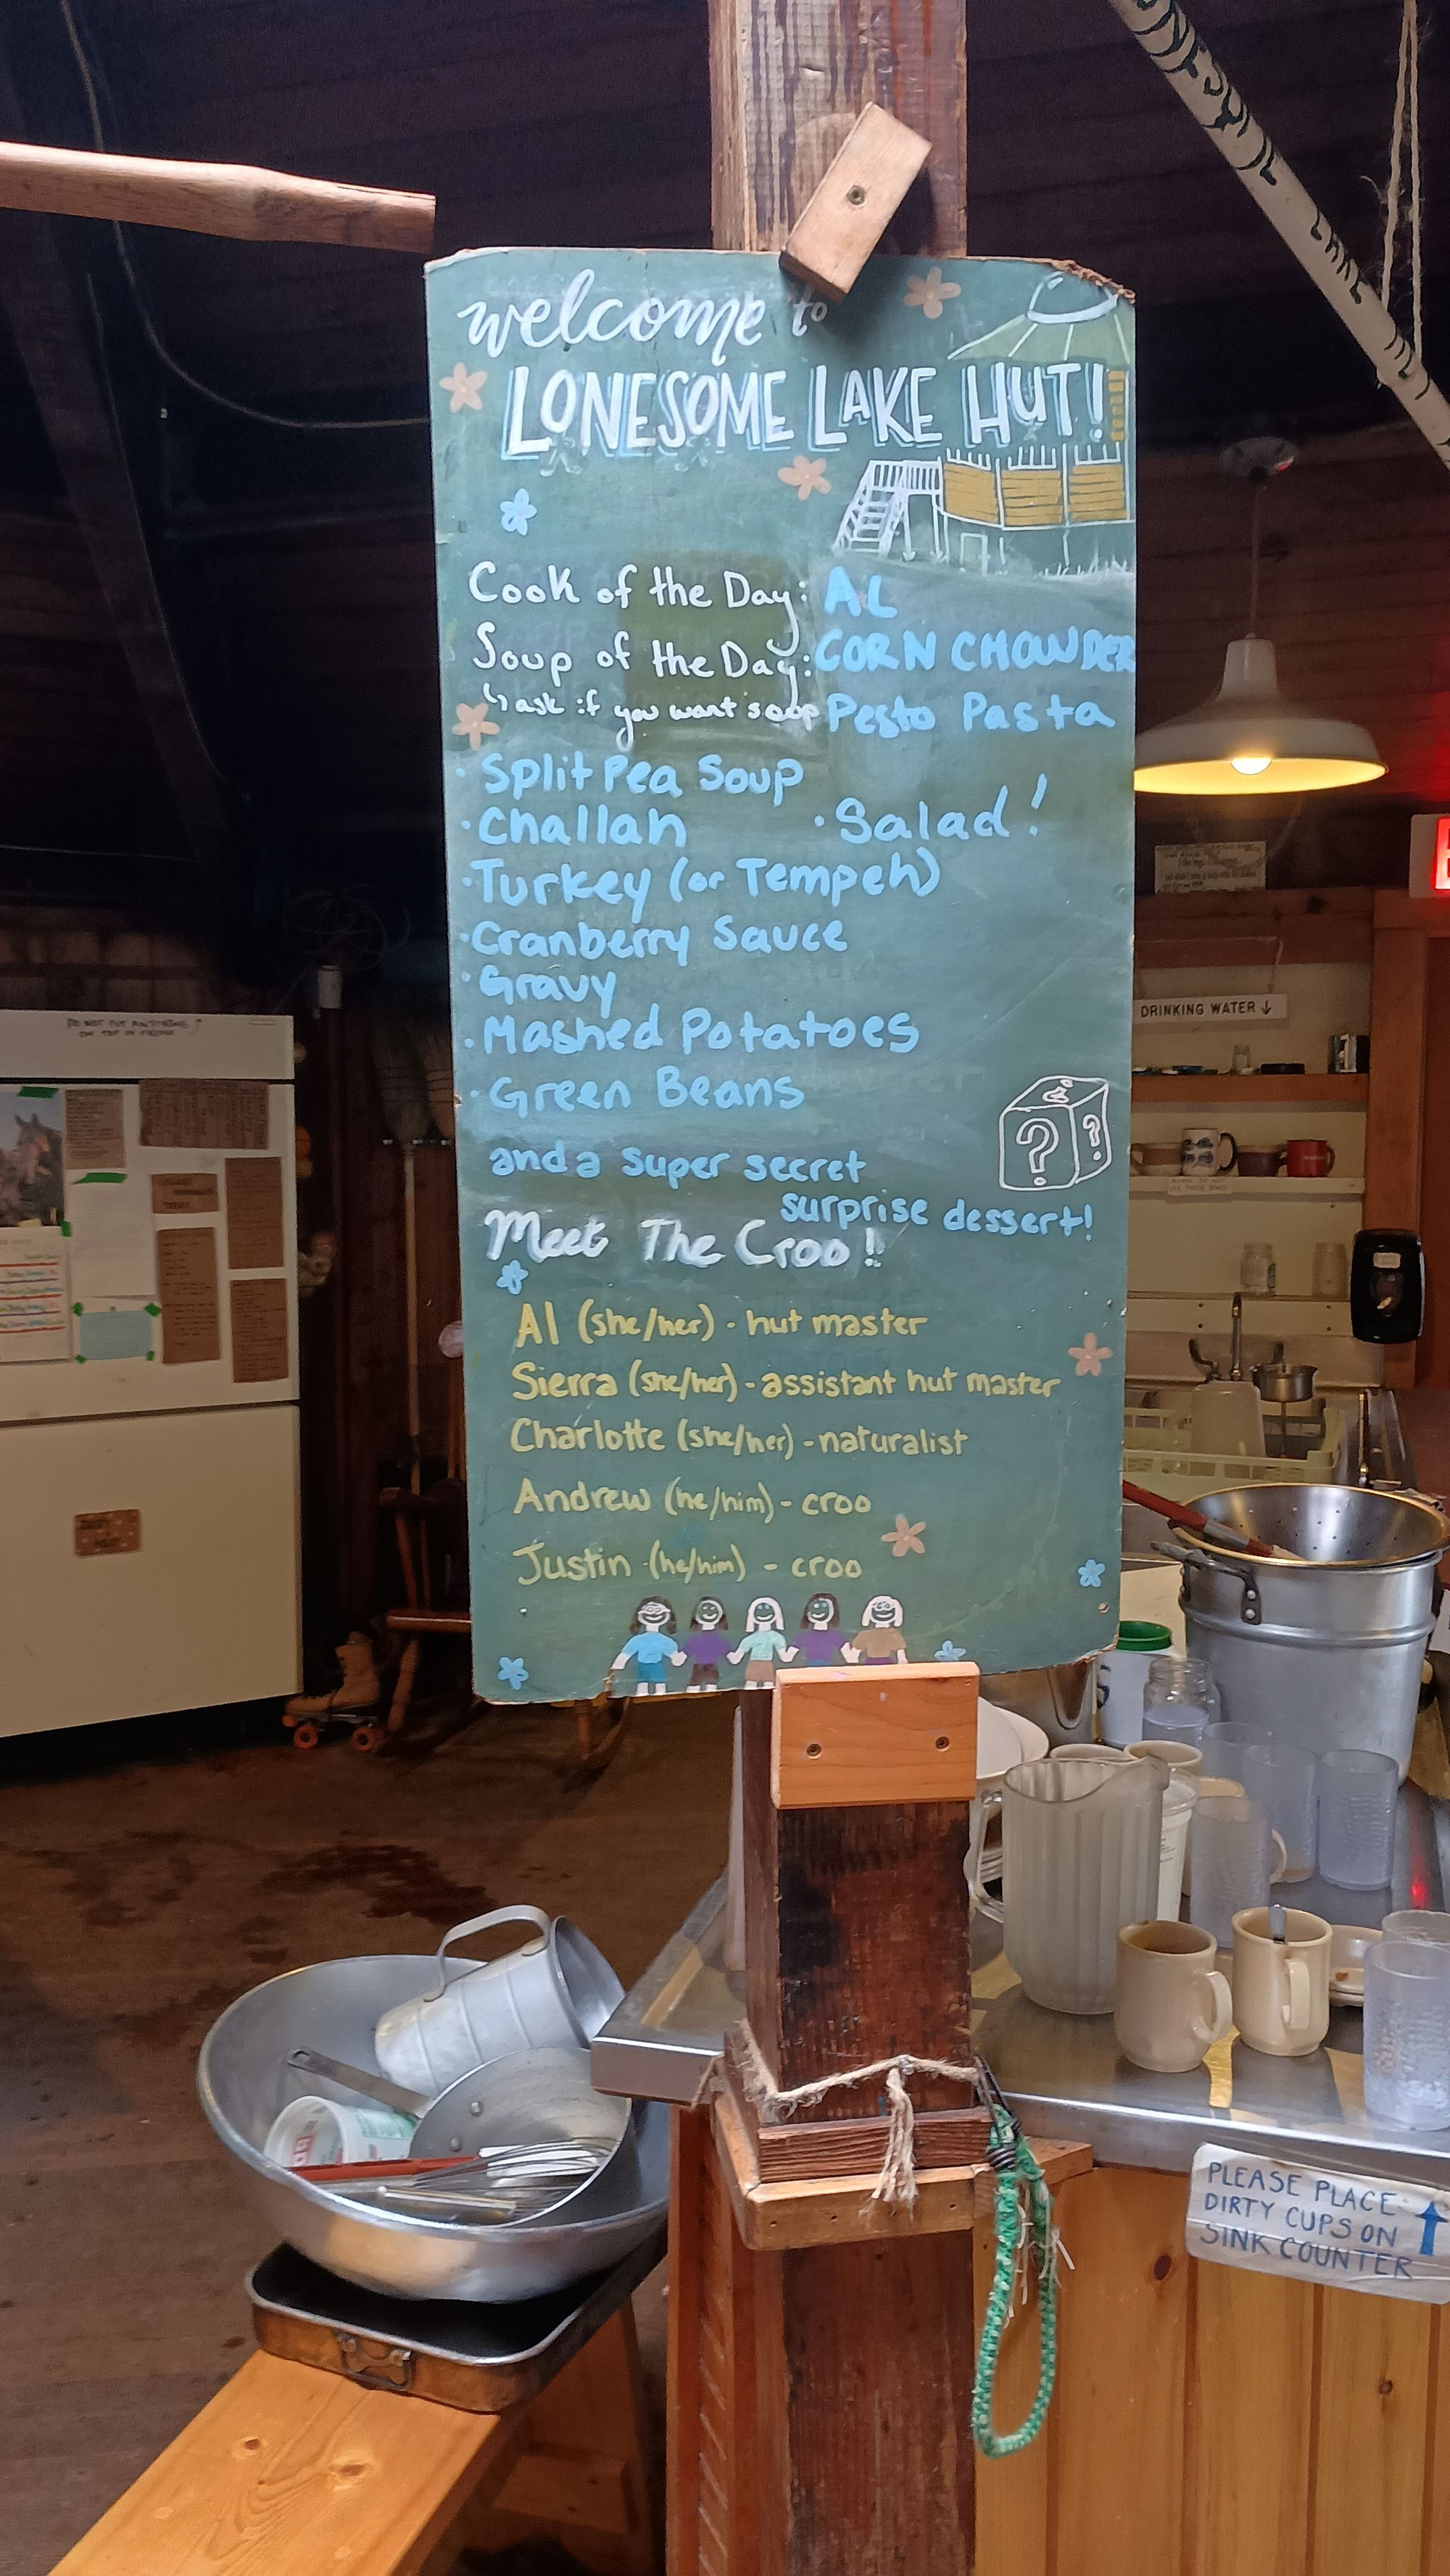 LONESOME LAKE
welcome to
LONESOME LAKE HUT!
Cook of the Day: AL
Soup of the Day: CORN CHOWDER
↳ ask if you want soup Pesto Pasta
· Split Pea Soup
· Challah · Salad!
· Turkey (or Tempeh)
· Cranberry Sauce
· Gravy
· Mashed Potatoes
· Green Beans
and a super secret
surprise dessert!
? ?
Meet The Croo!
Al (she/her) - hut master
Sierra (she/her) - assistant hut master
Charlotte (she/her) - naturalist
Andrew (he/him) - croo
Justin (he/him) - croo
DO NOT PUT ANYTHING
ON TOP OF FRIDGE
DRINKING WATER ↓
PLEASE PLACE
DIRTY CUPS ON
SINK COUNTER